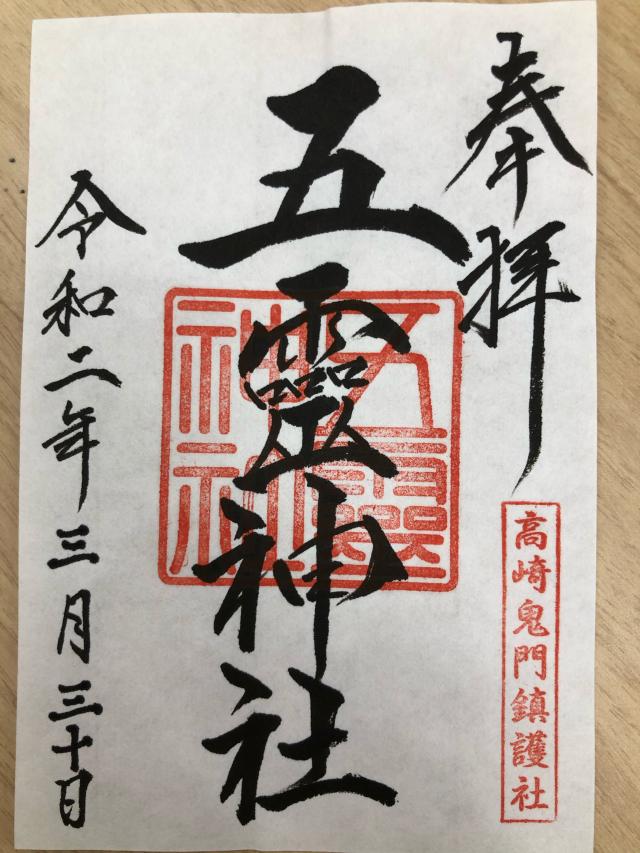 奉拝
高崎鬼門鎮護社
五靈神社
五靈神社
令和二年三月三十日